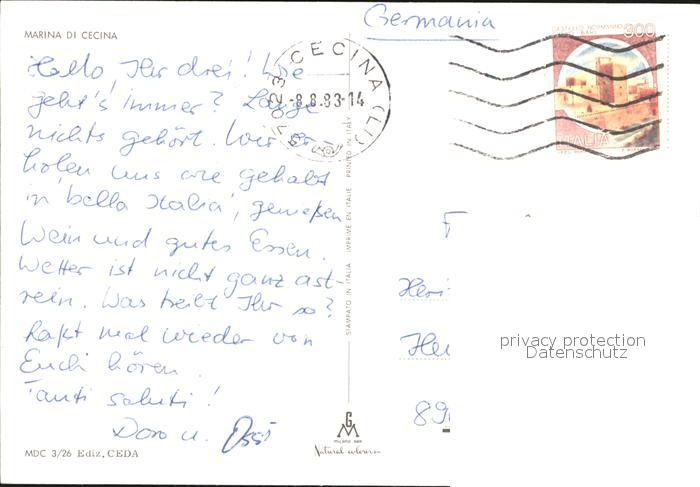 Germania
MARINA DI CECINA
CASTELLO NORMANNO
BARI
300
ITALIA
57023 CECINA (LI)
-8.8.83-14
Hallo, Ihr drei! Wie
geht's immer? Lange
nichts gehört. Wir er-
holen uns wie gehabt
in 'bella Italia', genießen
Wein und gutes Essen.
Wetter ist nicht ganz ast-
rein. Was treibt Ihr so?
Laßt mal wieder von
Euch hören.
Tanti saluti!
Doro u. Ossi
STAMPATO IN ITALIA IMPRIMÉ EN ITALIE PRINTED IN ITALY
F
Heri
Hei
89
privacy protection
Datenschutz
GM
milano
Natural colours
MDC 3/26 Ediz. CEDA